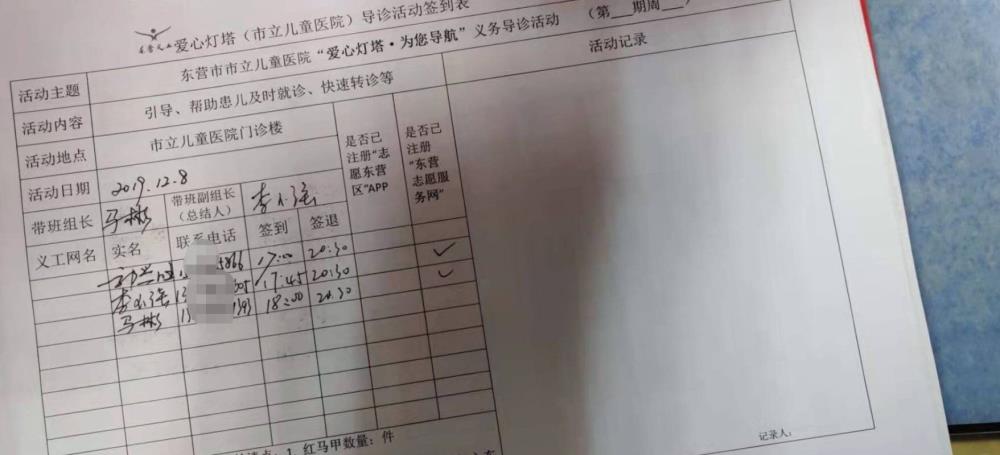 爱心灯塔（市立儿童医院）导诊活动签到表
活动主题 东营市市立儿童医院“爱心灯塔·为您导航”义务导诊活动 （第___期周___）
活动内容 引导、帮助患儿及时就诊、快速转诊等 活动记录
活动地点 市立儿童医院门诊楼 是否已注册“志愿东营区”APP 是否已注册“东营志愿服务网”
活动日期 2019.12.8
带班组长 马彬 带班副组长（总结人） 李小强
义工网名 实名 联系电话 签到 签退
5866 17:00 20:30 ✓
李小强 13 305 17:45 20:30 ✓
马彬 15 1393 18:00 20:30
1、红马甲数量： 件
记录人：